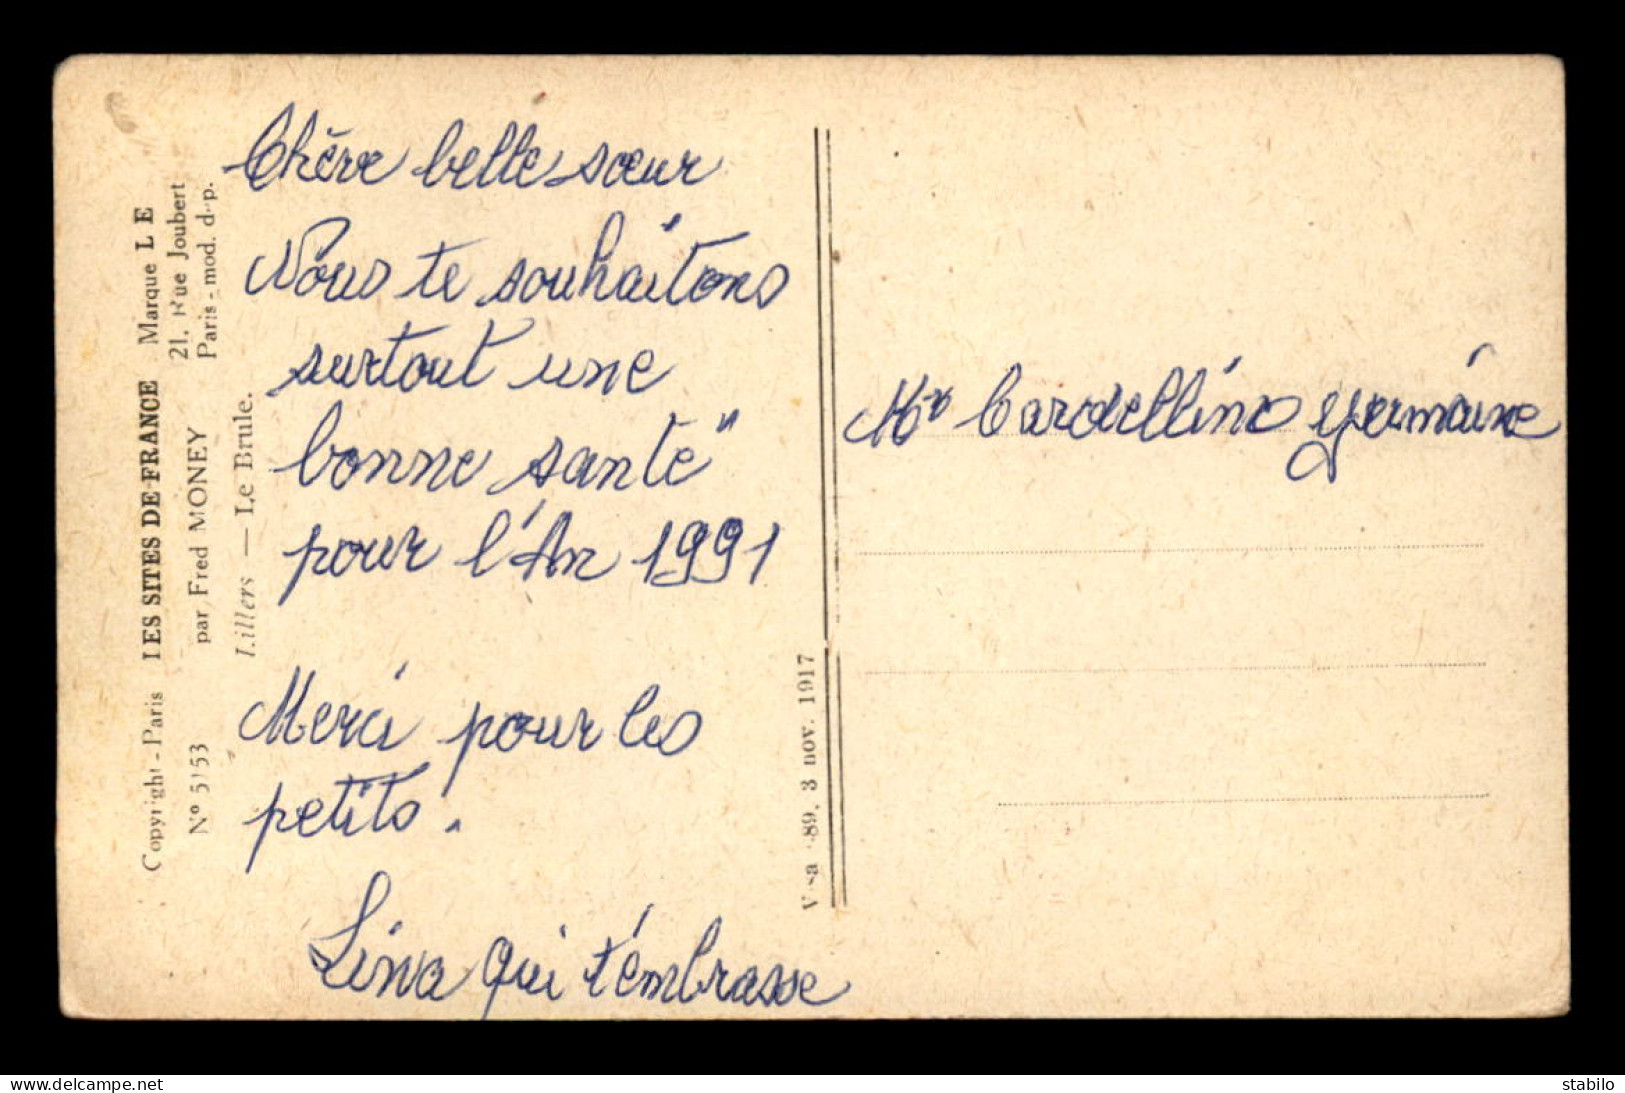 Chère belle sœur
Nous te souhaitons
surtout une
bonne santé"
pour l'An 1991
Merci pour les
petits.
Lina qui t'embrasse
Mr Cardellino Germaine
Copyright - Paris LES SITES DE FRANCE Marque L E
21, Rue Joubert
N° 5153 par Fred MONEY Paris - mod. dep.
Lillers — Le Brule.
Visa 89, 3 nov. 1917
www.delcampe.net
stabilo